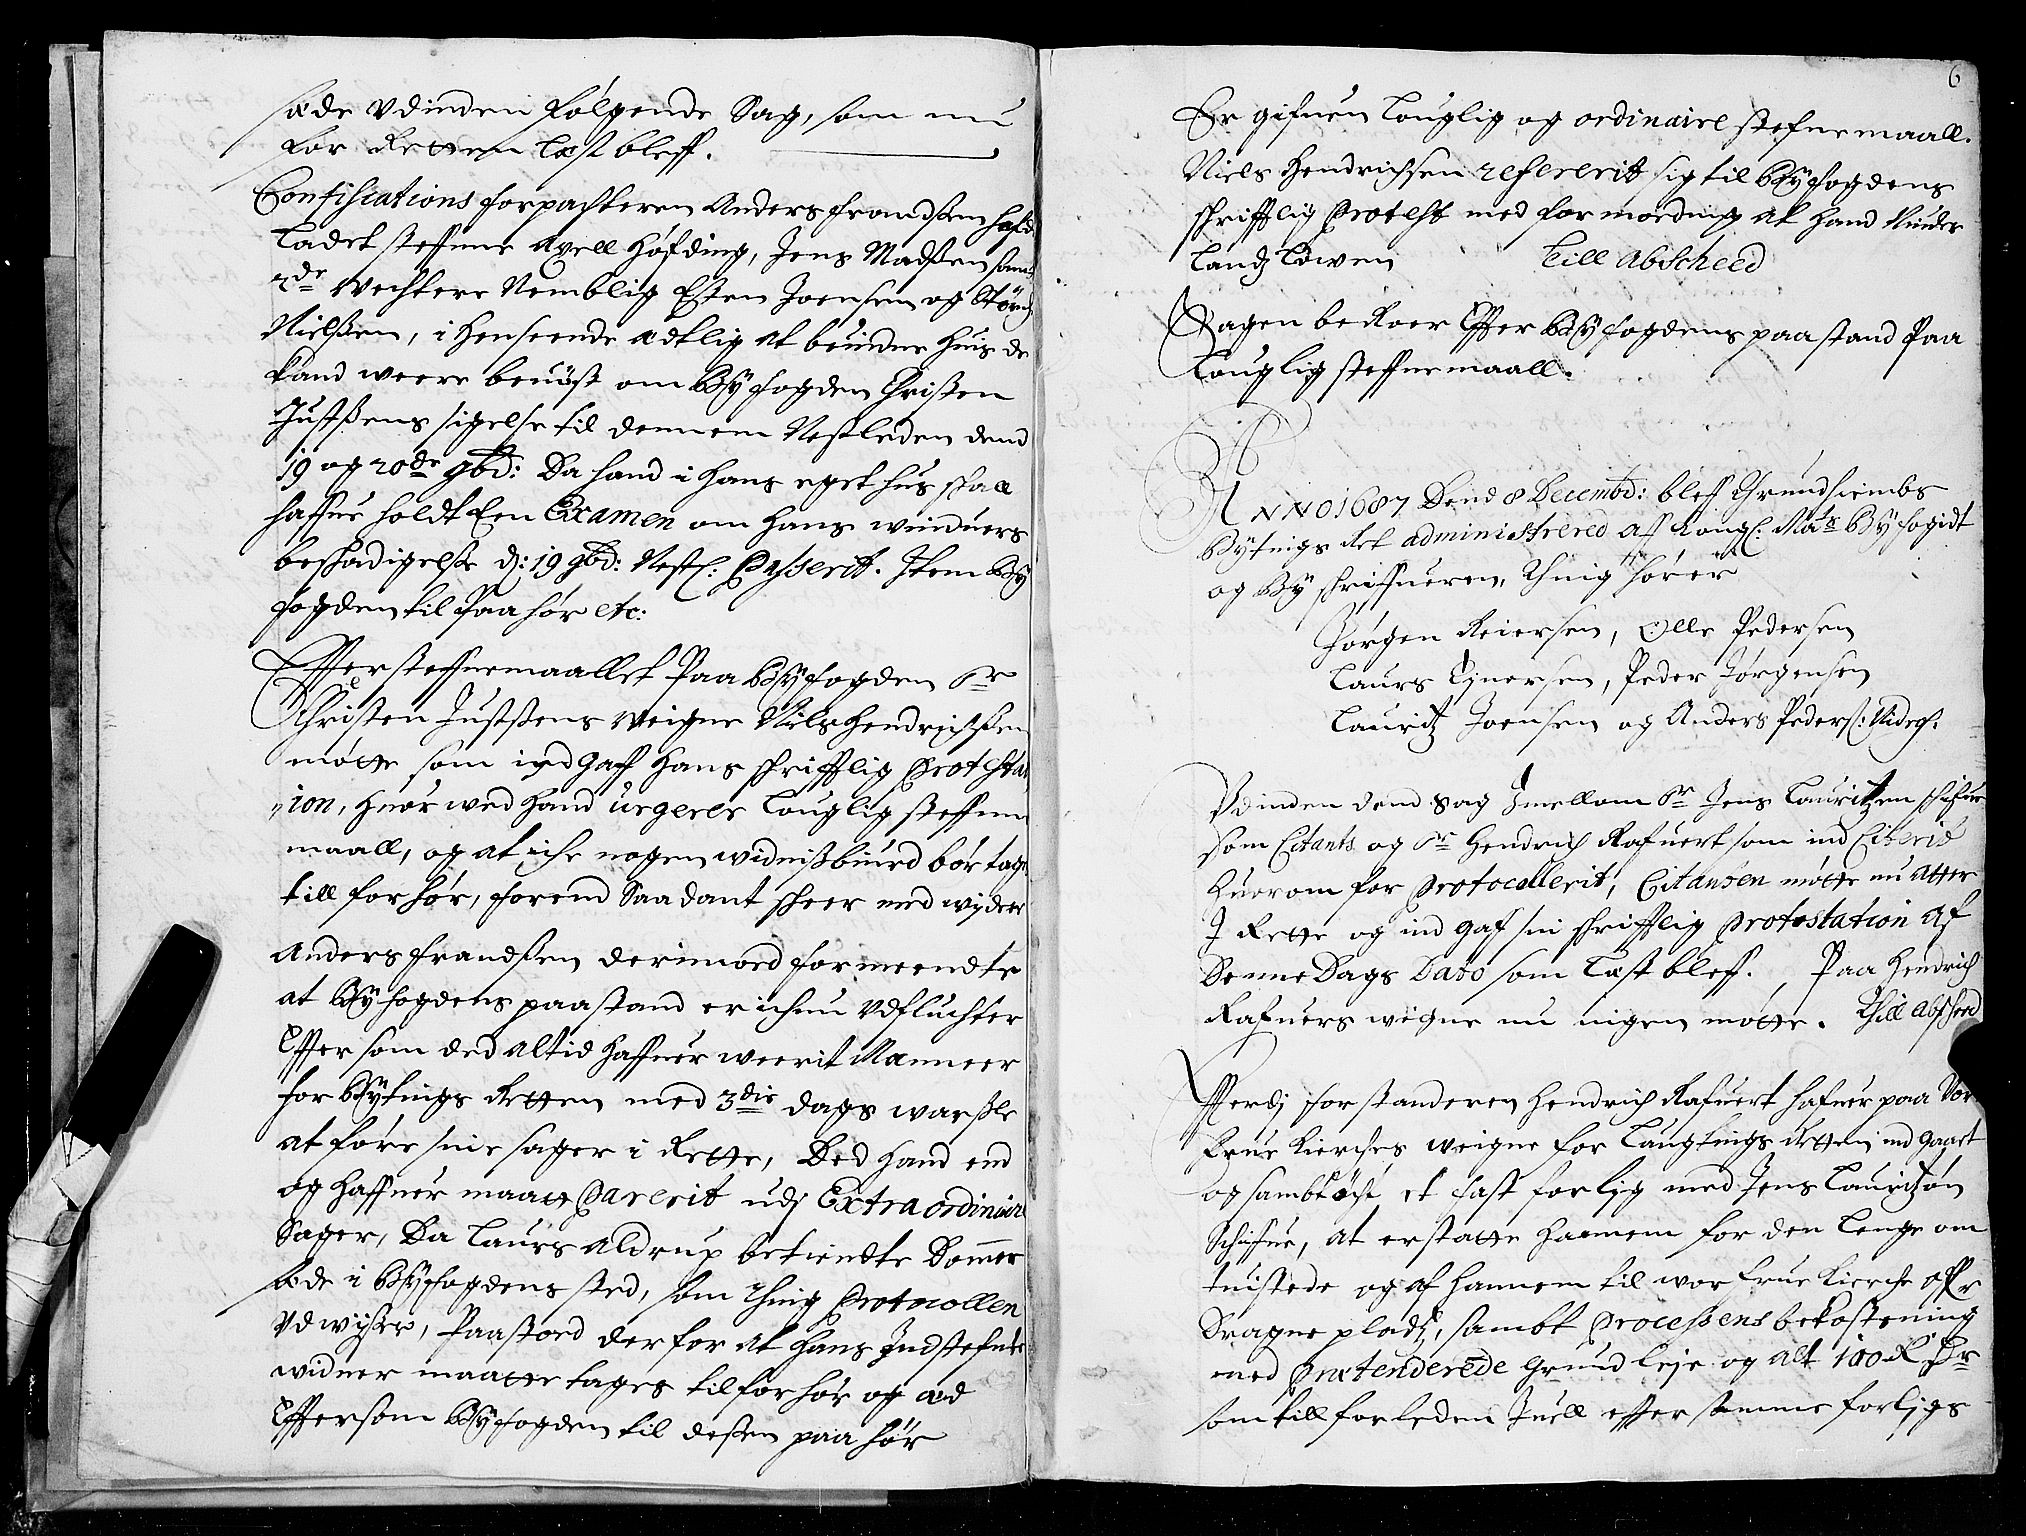 sæde Udinden følgende Sag, som nu
for Retten læst bleff.
Confiscations forpachteren Anders Frandssen hafd:
ladet steffne Axell Høfding, Jens Madssen samt
2de Wechtere Nemblig Esten Joensen og
Nielssen, i Henseende ædtlig at vinde huis de
kand weere beuist om Byfogden Christen
Justsens sigelse til dennem Nestleden dend
19 og 20de 9bd: Da hand i hans eget hus skall
haffue holdt Een Examen om hans winduers
beskadigelse d: 19 9bd: Nestl: Passerit. Item By
fogden til Paa hør etc:
Effter steffnemaallet Paa Byfogden Sr
Christen Justsens Weigne Niels Hendrichsen
møtte som ind gaff hans skrifftlig Protestat
ion, huor wed hand urgerer louglig steffne
maall, og at iche nogen widnissbiurd bør tages
till forhør, forend Saadant skeer med wijdere
Anders Frandssen derimod formeendte
at Byfogdens paastand er ichun Udfluchter
Effter som ded altid haffuer weerit Manneer
for Bytings Retten med 3die dags warssle
at føre sine sager i Rette, Ded hand end
og haffuer maatt Parerit udj Extraordinair
Sager, Da Laurs Aldrup betiendte Dommer
sæde i Byfogdens sted, som Thing Protocollen
Udwijsser, Paastoed derfor at hans Indstefnte
widner maatte tages til forhør og æd
Efftersom Byfogden til dessen paa hør
6
Er gifuen louglig og ordinaire stefnemaall.
Niels Hendrichsen refererit sig til Byfogdens
skrifftlig Protest med formoedning at hand Nyder
Landz Lowen Till Abscheed
Sagen beroer Effter Byfogdens paastand Paa
Louglig steffnemaall.
ANNO 1687 Dend 8 Decembd: bleff Thrundhiembs
Bytings Ret administrered aff Kongl: Mats Byfogidt
og By skriffueren, Thing hører
Jørgen Reiersen, Olle Pedersen
Laurs Ejnersen, Peder Jørgensen
Lauritz Joensen og Anders Peders: Nidros:
Udinden dend sag Jmellom Sr Jens Lauritzen schifuer
som Citants og Sr Hendrich Rafuert som ind Citerid
Huorom før Protocollerit, Citansen møtte nu atter
J Rette og ind gaf sin skrifftlig Protestation Af
Denne Dags Dato som læst bleff. Paa Hendrich
Rafuers weigne nu ingen møtte. Thill abscheed
Efferdj forstanderen Hendrich Rafuert hafuer paa Vor
Frue Kierches weigne for Laugtings Retten ind gaaet
og sambtøcht et fast forlig med Jens Lauritzøn
Schifue, at erstatte hannem for den lenge om
tuistede og af hannem til wor Frue Kierche
Dragne pladz, sambt Processens bekostening
med Prætenderede Grund leje og alt 100 R
som till forleden Juell effter samme forligs